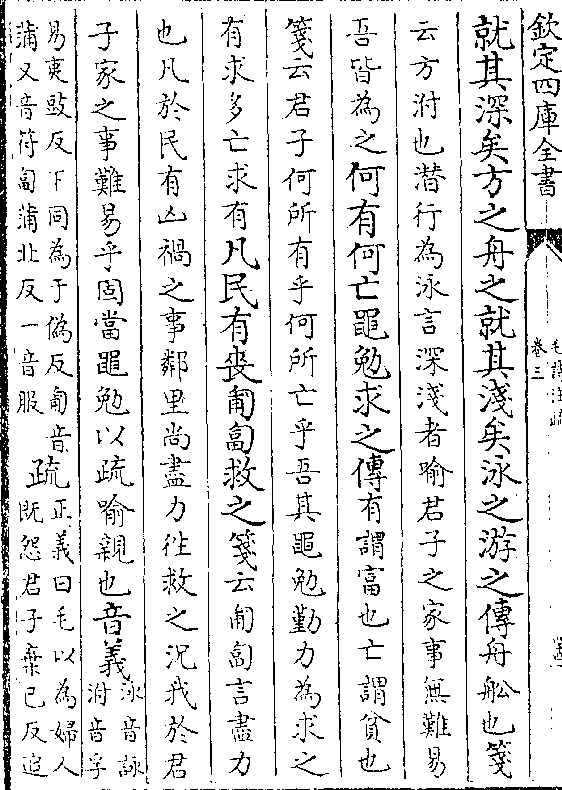 欽定四庫全書
毛詩注疏
卷三
就其深矣方之舟之就其淺矣泳之游之傳舟船也箋
云方泭也潜行為泳言深淺者喻君子之家事無難易
吾皆為之何有何亡黽勉求之傳有謂富也亡謂貧也
箋云君子何所有乎何所亡乎吾其黽勉勤力為求之
有求多亡求有凡民有喪匍匐救之箋云匍匐言盡力
也凡於民有凶禍之事鄰里尚盡力徃救之況我於君
子家之事難易乎固當黽勉以疏喻親也音義
泳音詠
泭音孚
易夷豉反下同為于偽反匍音
蒲又音符匐蒲北反一音服
疏
正義曰毛以為婦人
既怨君子棄已反追